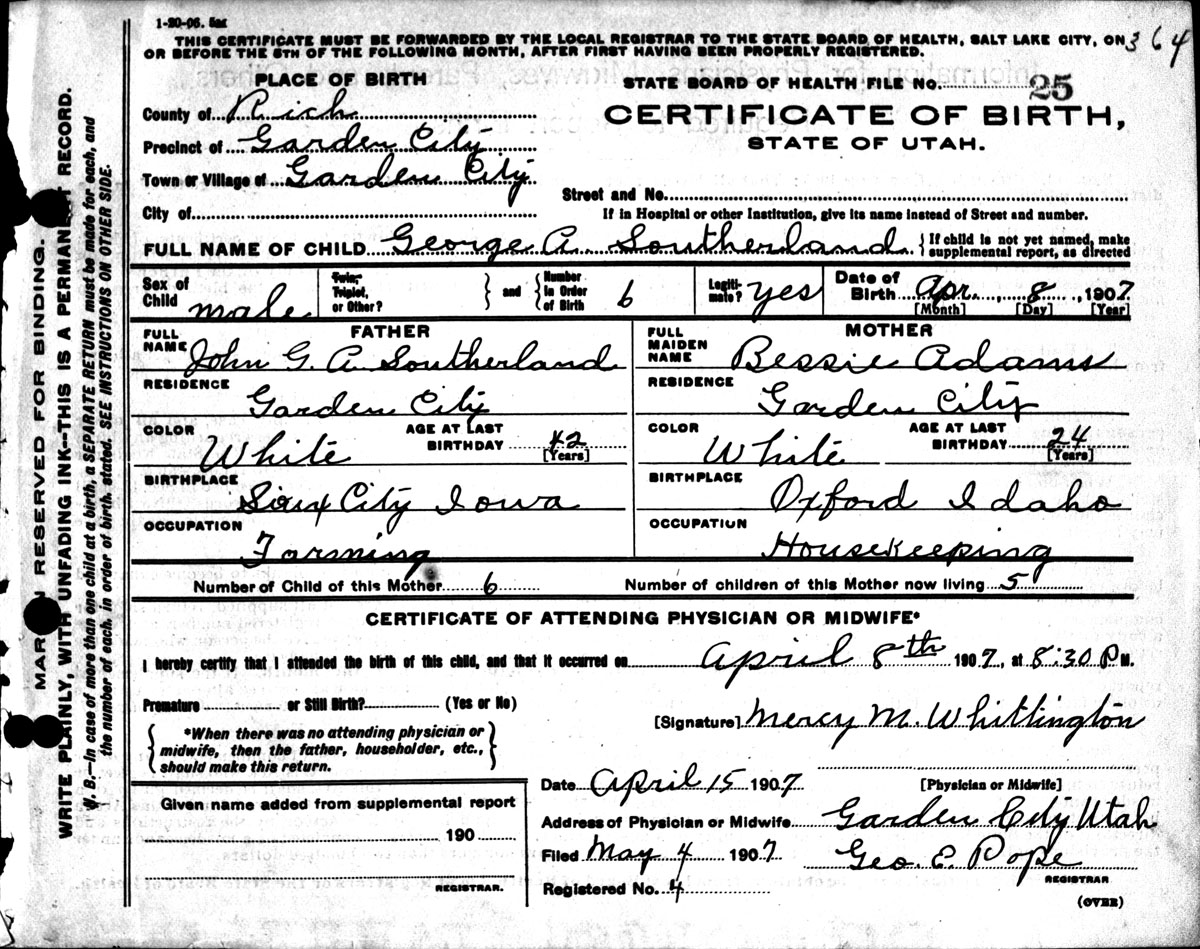 1-20-06. 5m
THIS CERTIFICATE MUST BE FORWARDED BY THE LOCAL REGISTRAR TO THE STATE BOARD OF HEALTH, SALT LAKE CITY, ON
OR BEFORE THE 5TH OF THE FOLLOWING MONTH, AFTER FIRST HAVING BEEN PROPERLY REGISTERED.
364
PLACE OF BIRTH
County of Rich
Precinct of Garden City
Town or Village of Garden City
City of
STATE BOARD OF HEALTH FILE NO. 25
CERTIFICATE OF BIRTH,
STATE OF UTAH.
Street and No.
If in Hospital or other Institution, give its name instead of Street and number.
FULL NAME OF CHILD George A. Southerland { If child is not yet named, make
supplemental report, as directed
Sex of Child male
Twin, Triplet, or Other? } and { Number in Order of Birth 6
Legiti-mate? yes
Date of Birth Apr. 8, 1907
[Month] [Day] [Year]
FATHER
FULL NAME John G. A. Southerland
RESIDENCE Garden City
COLOR White
AGE AT LAST BIRTHDAY 42
[Years]
BIRTHPLACE Sioux City Iowa
OCCUPATION Farming
MOTHER
FULL MAIDEN NAME Bessie Adams
RESIDENCE Garden City
COLOR White
AGE AT LAST BIRTHDAY 24
[Years]
BIRTHPLACE Oxford Idaho
OCCUPATION Housekeeping
Number of Child of this Mother 6 Number of children of this Mother now living 5
CERTIFICATE OF ATTENDING PHYSICIAN OR MIDWIFE*
I hereby certify that I attended the birth of this child, and that it occurred on April 8th 1907, at 8:30 P M.
Premature or Still Birth? (Yes or No)
{ *When there was no attending physician or
midwife, then the father, householder, etc.,
should make this return. }
[Signature] Mercy M. Whittington
[Physician or Midwife]
Date April 15 1907
Address of Physician or Midwife Garden City Utah
Filed May 4 1907 Geo. E. Pope
REGISTRAR
Registered No. 4
(OVER)
Given name added from supplemental report
190
REGISTRAR.
RESERVED FOR BINDING.
WRITE PLAINLY, WITH UNFADING INK--THIS IS A PERMANENT RECORD.
N. B.--In case of more than one child at a birth, a SEPARATE RETURN must be made for each, and
the number of each, in order of birth stated. SEE INSTRUCTIONS ON OTHER SIDE.